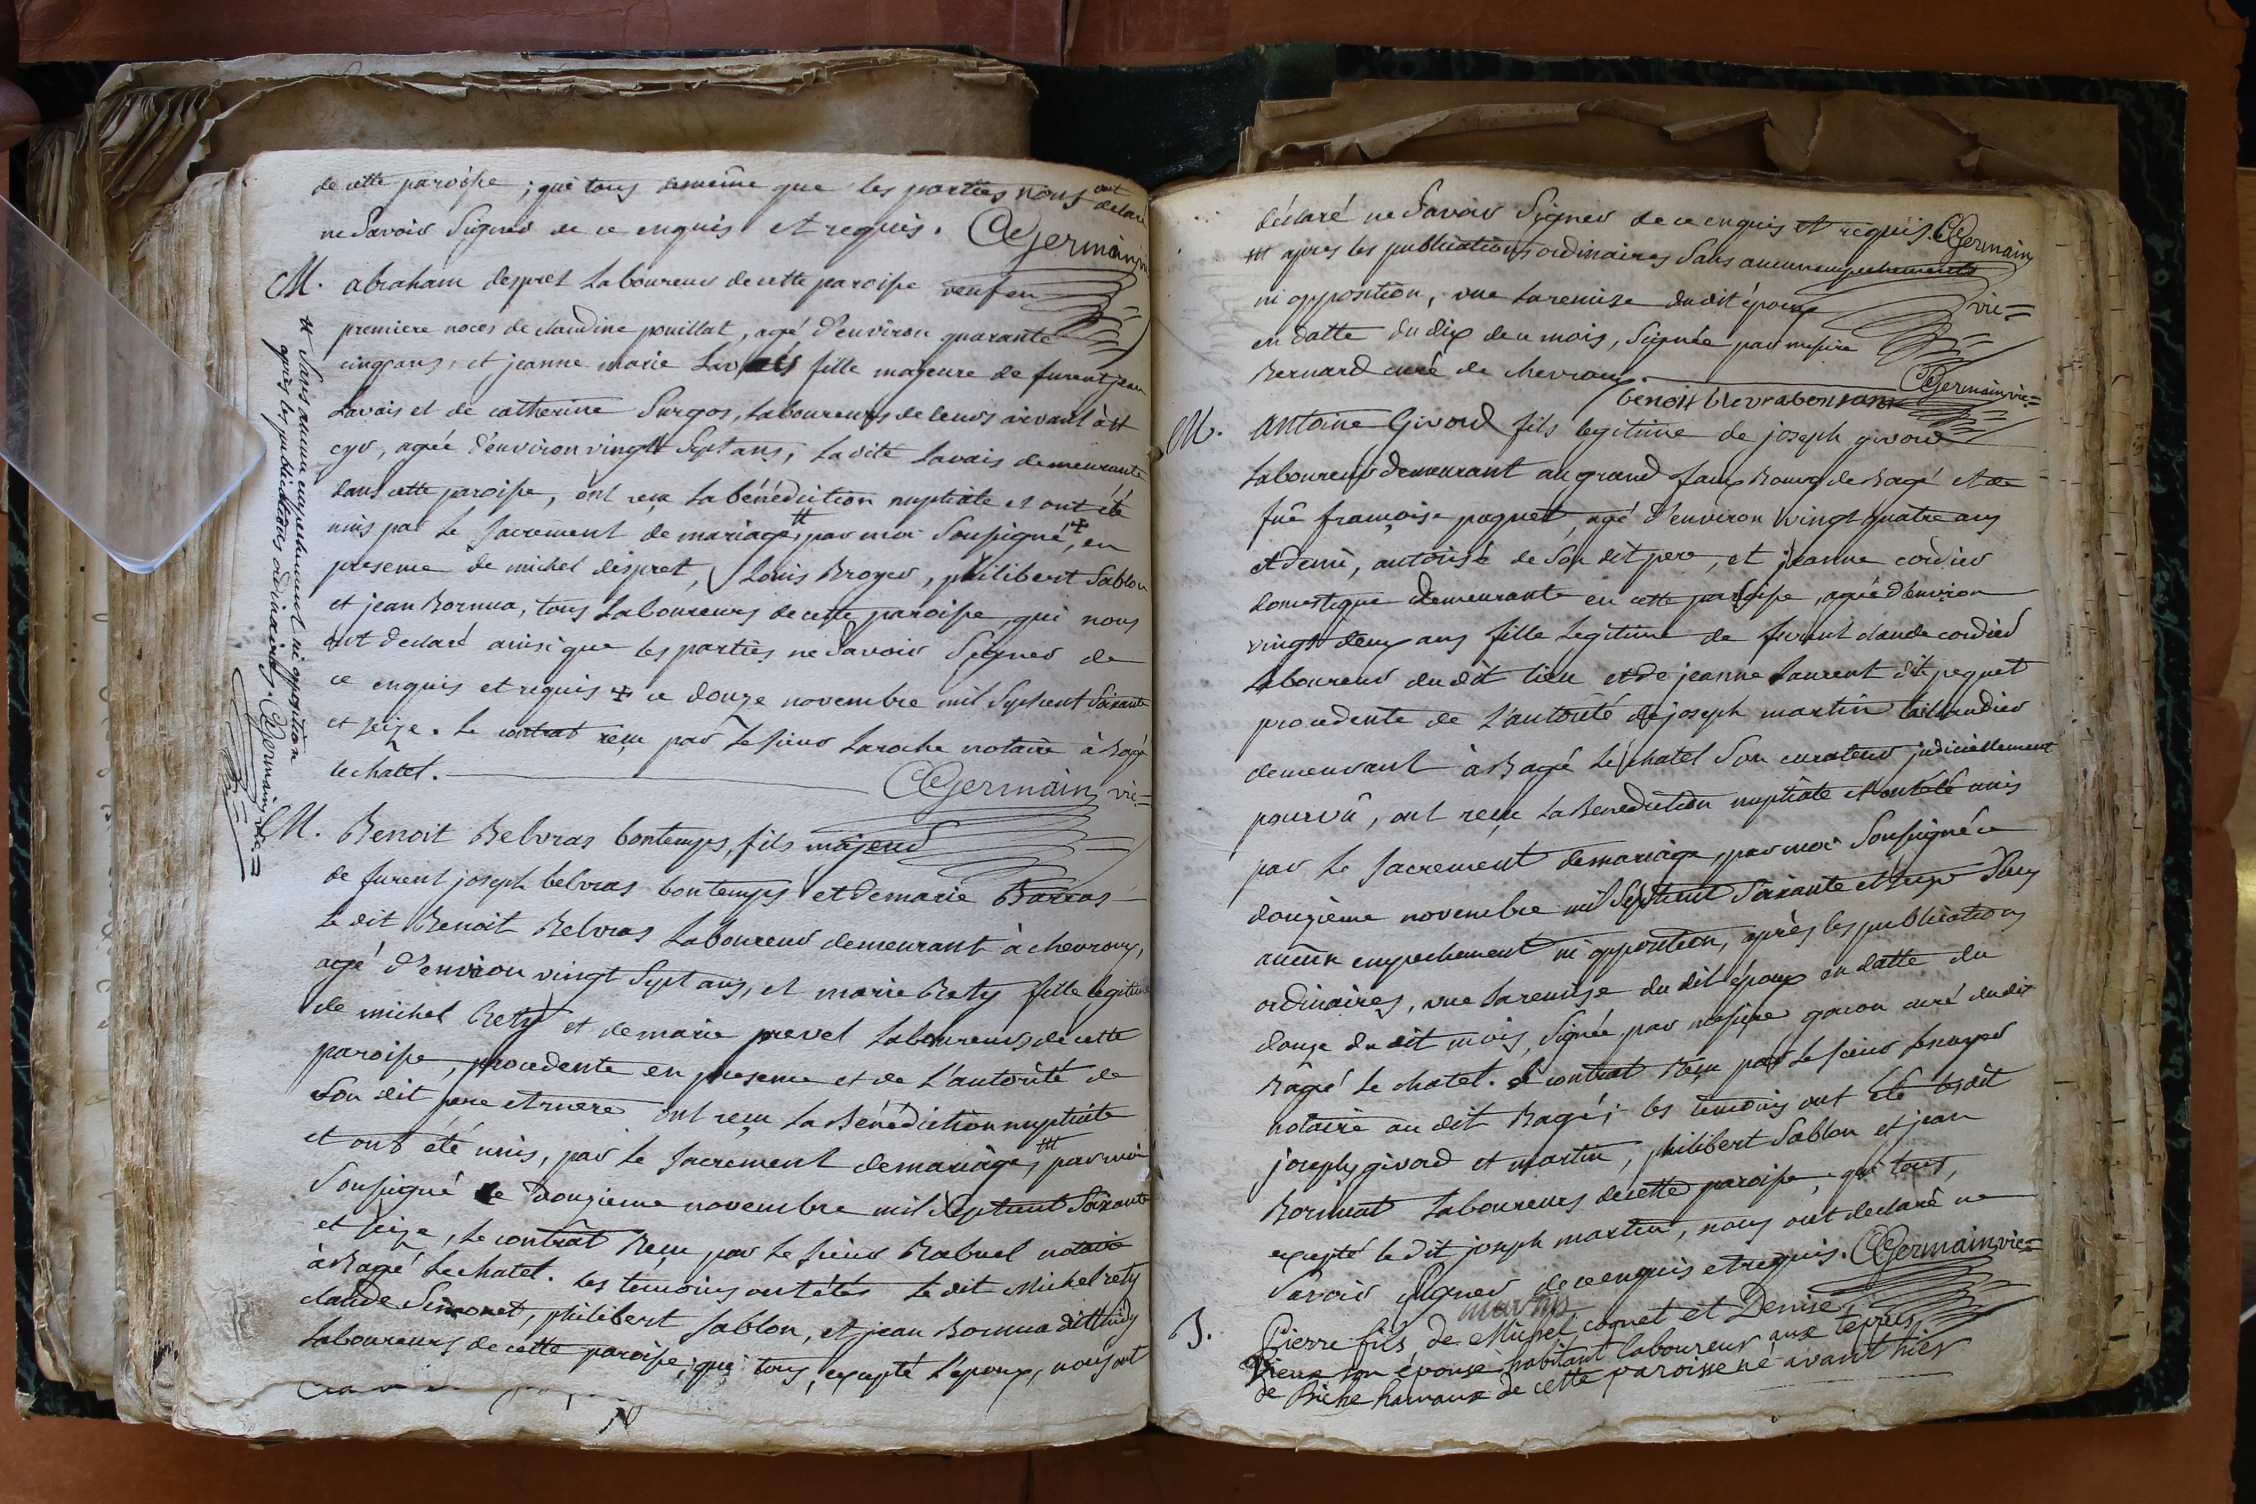 de cette paroisse ; qui tous demême que les parties nous ont declaré
ne Savoir Signer de ce enquis et requis. CGermain
M. abraham despret Laboureur de cette paroisse veuf en
premiere noces de claudine pouillat, agé d'environ quarante
cinq ans, et jeanne marie Lavais fille majeure de furent jean
Lavais et de catherine Surgos, Laboureurs de leurs vivant à st
cyr, agée d'environ vingt Sept ans, La dite Lavais demeurante
dans cette paroisse, ont reçu la bénédiction nuptiale et ont été
unis par Le Sacrement de mariage, par moi Soussigné, en
presence de michel despret, Louis Broyer, philibert Sablon
et jean Bornua, tous Laboureurs de cette paroisse, qui nous
ont declaré ainsi que les parties ne Savoir Signer de
ce enquis et requis ce douze novembre mil Septcent Soixante
et seize. Le contrat reçu par Le Sieur Laroche notaire à Bagé
lechatel. CGermain vic=
# Sans aucun empechement ni opposition
après les publications ordinaires. CGermain vic=
M. Benoit Belvras bontemps, fils majeur
de furent joseph belvras bontemps et de marie Barras
Le dit Benoit Belvras Laboureur demeurant à chevroux,
agé d'environ vingt Sept ans, et marie Rety fille legitime
de michel Rety et de marie prevel Laboureurs de cette
paroisse, procedente en presence et de L'autorité de
Son dit pere et mere ont reçu La Bénédiction nuptiale
et ont été unis, par Le Sacrement demariage, par moi
Soussigné le douzieme novembre mil Septcent Soixante
et seize, Le contrat Reçu par Le Sieur Rabuel notaire
à Bagé Lechatel. les témoins ont étés Le dit Michel rety
claude Simonet, philibert Sablon, et jean Bornua dit
Laboureurs de cette paroisse, qui tous, excepté L'epoux, nous ont
déclaré ne Savoir Signer de ce enquis et requis. CGermain
### apres les publications ordinaires Sans aucun empechement
ni opposition, vue La remise du dit époux vic=
en datte du dix de ce mois, Signée par messire
Bernard curé de chevroux. CGermain vic=
benoit
M. Antoine Givord fils legitime de joseph givord
Laboureur demeurant au grand faux Bourg de Bagé et de
fûe françoise paquet, agé d'environ vingt quatre ans
et demi, autorisé de Son dit pere, et jeanne cordier
domestique demeurante en cette paroisse, agée d'environ
vingt deux ans fille Legitime de furent claude cordier
Laboureur du dit lieu et de jeanne Laurent dit pequet
procedente de L'autorité de joseph martin taillandier
demeurant à Bagé Le chatel Son curateur judiciellement
pourvû, ont reçu La Benediction nuptiale et ont été unis
par Le Sacrement demariage, par moi Soussigné ce
douzième novembre mil Septcent Soixante et seize Sans
aucun empechement ni opposition, après les publications
ordinaires, vue La remise du dit époux en datte du
douze du dit mois, Signée par messire gacon curé du dit
Bâgé Le chatel. Le contrat Reçu par Le Sieur
notaire au dit Bagé ; les témoins ont été lesdit
joseph givord et martin, philibert Sablon et jean
Bornuat Laboureurs de cette paroisse, qui tous,
excepté le dit joseph martin, nous ont declaré ne
Savoir Signer de ce enquis et requis. CGermain vic=
martin
B. Pierre fils de Michel coquet et Denise
Vieux son épouse habitant laboureur aux tepres
de Biche hameaux de cette paroisse né avant hier